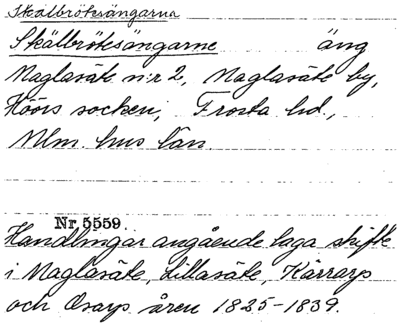 Skälbrötesängarna
Skälbrötesängarne äng
Maglasäte n:r 2, Maglasäte by,
Höörs socken, Frosta hd.,
Mlm. hus län
Nr 5559.
Handlingar angående laga skifte
i Maglasäte, Lillasäte, Kärrarp
och Osarp åren 1825-1839.